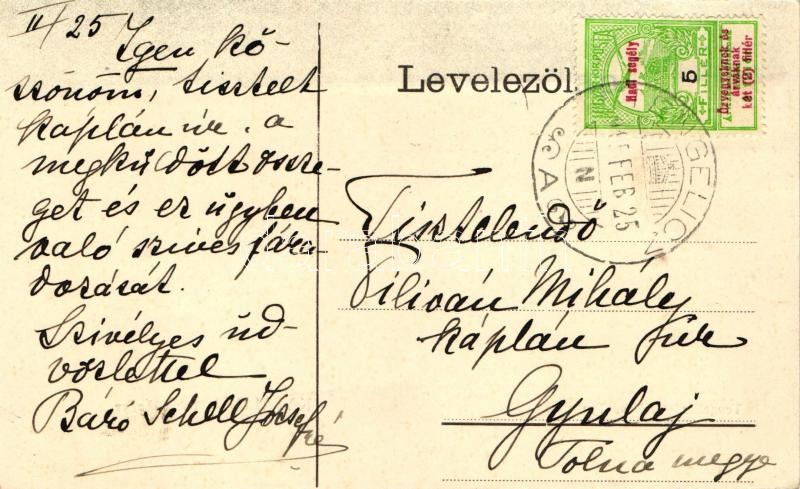 II/25
Igen kö-
szönöm, tisztelt
káplán úr. a
megküldött össze-
get és ez ügyben
való szives fára-
dozását.
Szivélyes üd-
vözlettel
Báró Schell Józsefné
Levelezől
Hadi segély
5
FILLÉR
Özvegyeknek és
árváknak
két (2) fillér
FEB 25
Tisztelendő
Mihály
káplán úr
Gyulaj
Tolna megye